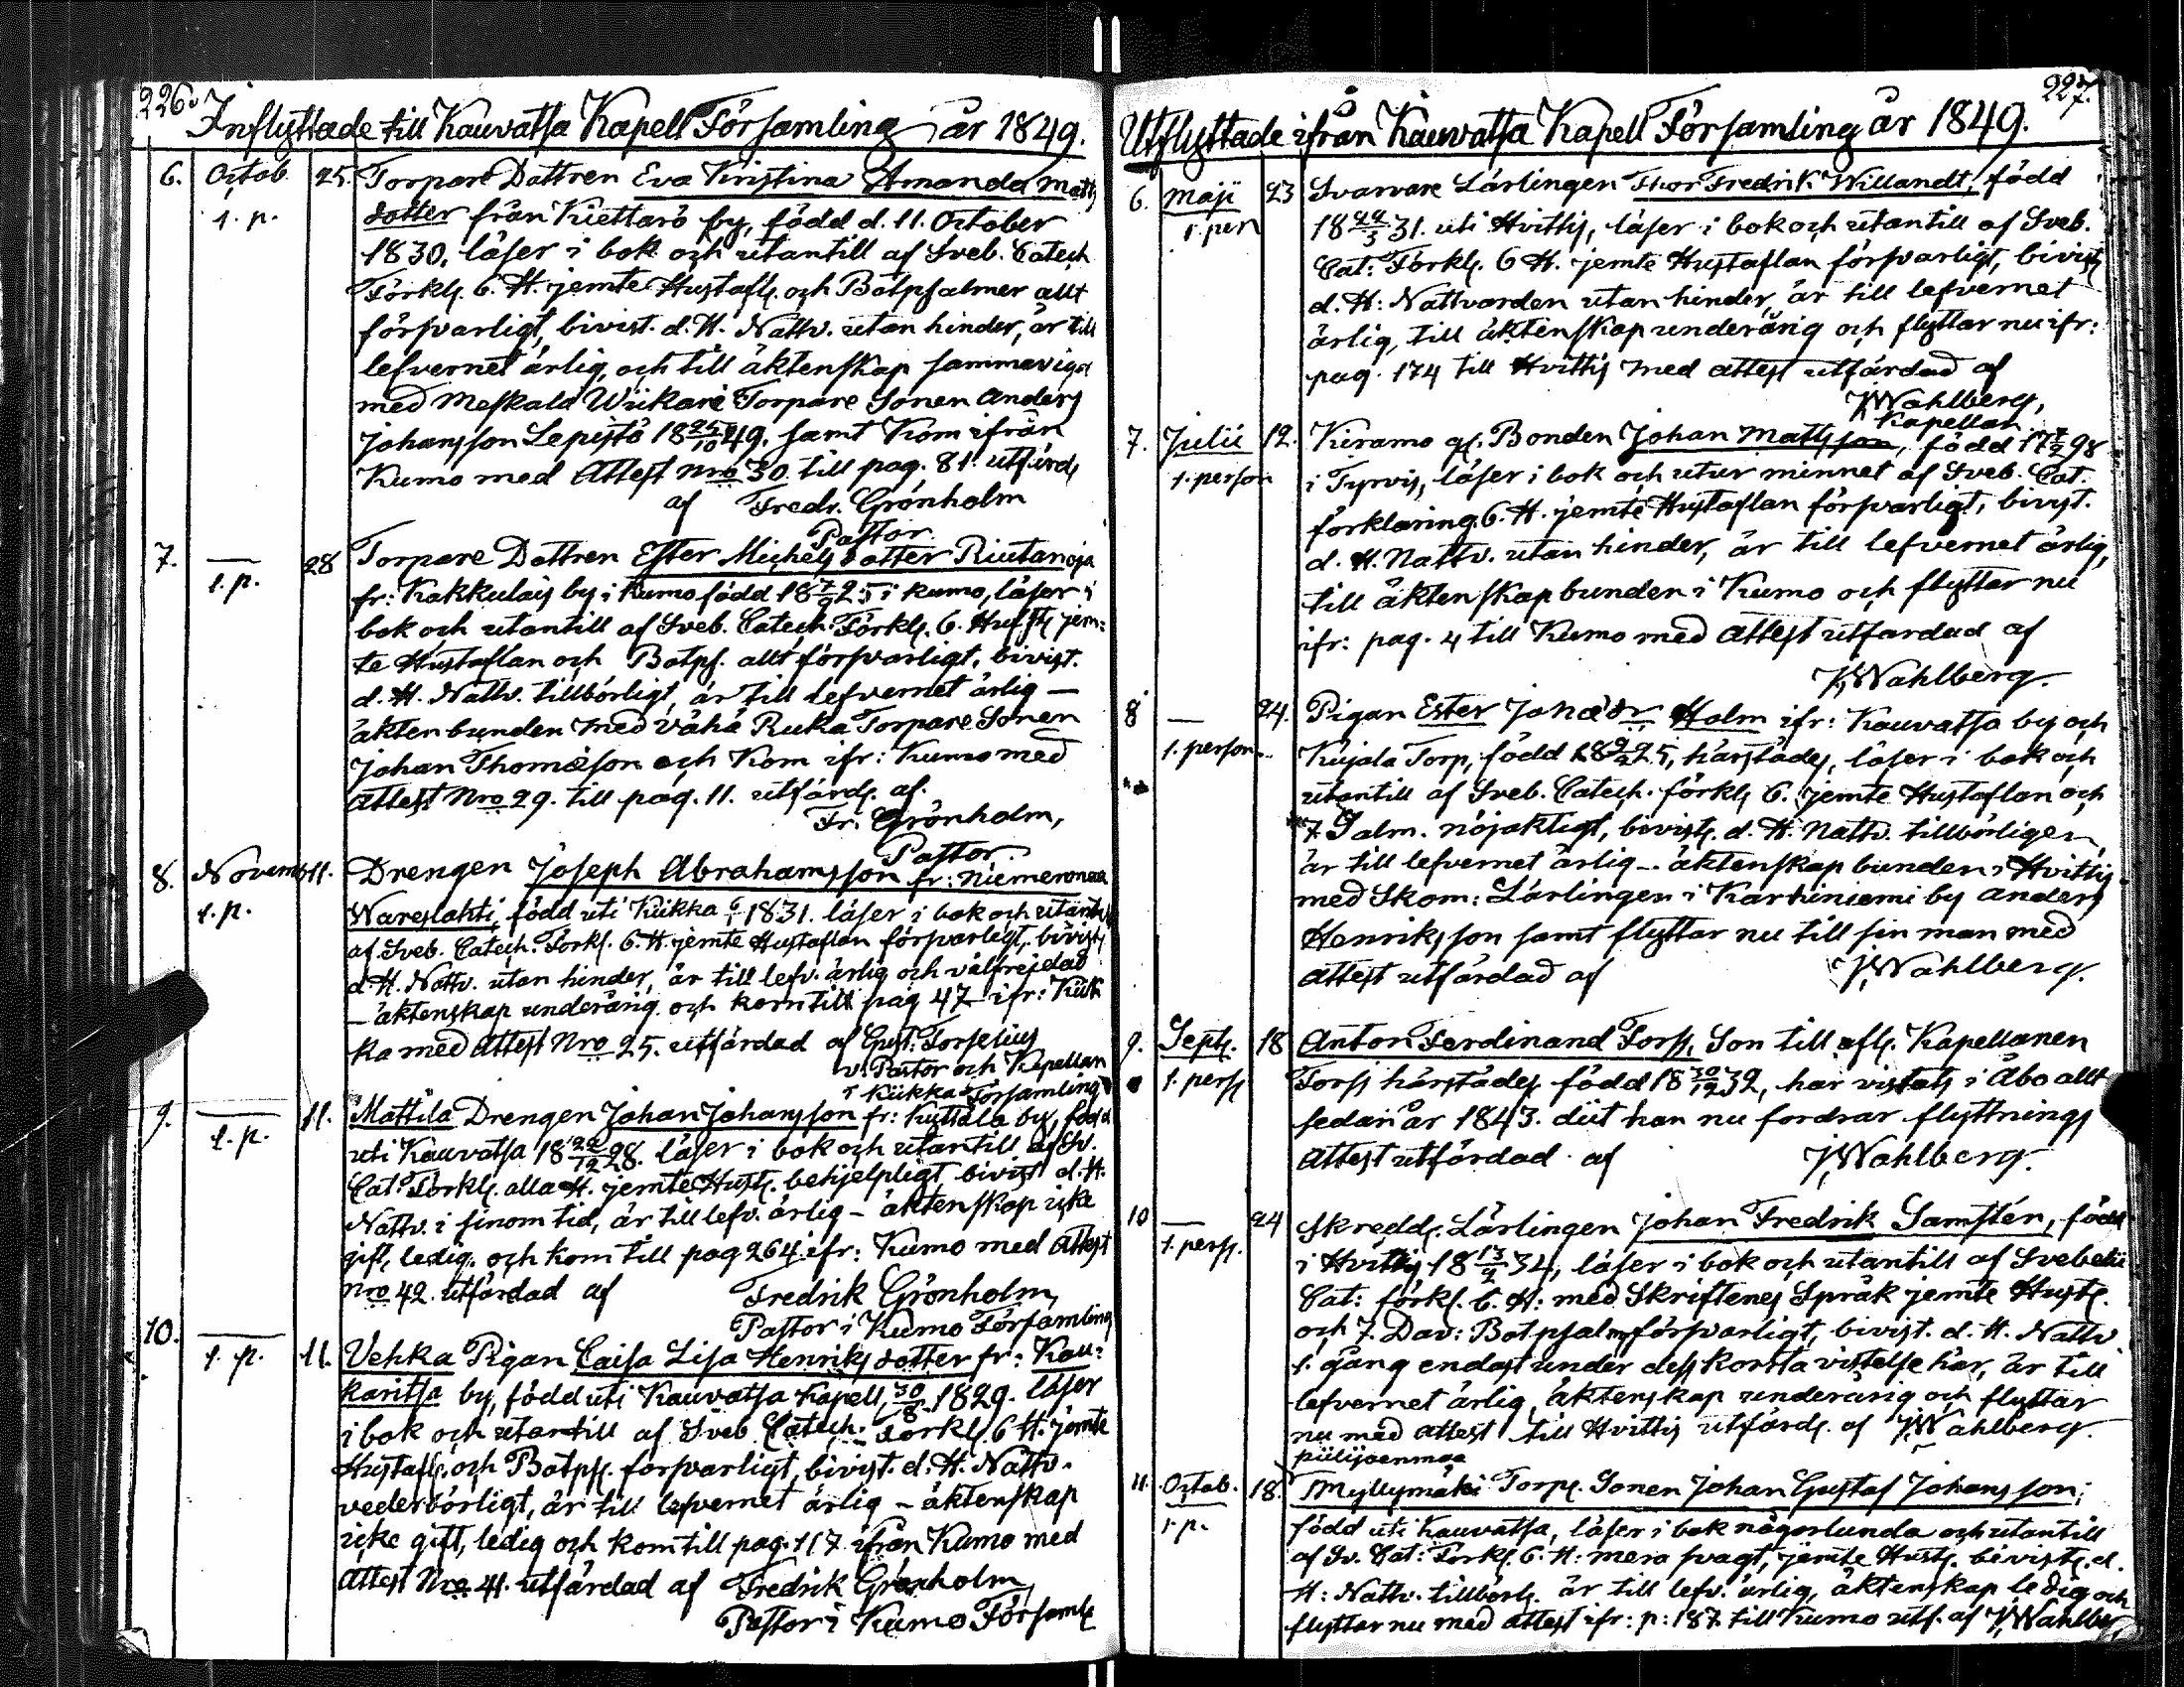 226.
Inflyttade till Kauvatsa Kapell Församling år 1849.
6. Octob. 25. Torpare Dottren Eva Kristina Amanda Matts
1. p. dotter från Kiettarö by, född d. 11. October
1830, läser i bok och utantill af Sveb. Catech
Förkls. 6. H. jemte Hustafls. och Botpsalmer allt
försvarligt, bivist. d. H. Nattv. utan hinder, är till
lefvernet ärlig, och till äktenskap sammanvigd
med Meskala Wiikari Torpare Sonen Anders
Johansson Lepistö 18 25/10 49. samt kom ifrån
Kumo med Attest Nro 30. till pag. 81. utfärds
af Fredr. Grönholm
Pastor.
7. — 28 Torpare Dottren Ester Michels dotter Riutanoja
1. p. fr: Kakkulais by i Kumo född 18 7/9 25 i Kumo, läser i
bok och utantill af Sveb. Catech. Förkls. 6. Hufsts jem:
te Hustaflan och Botps. allt försvarligt, bivist.
d. H. Nattv. tillbörligt, är till lefvernet ärlig —
äkten bunden med Vähä Ruka Torpare Sonen
Johan Thomæson och kom ifr: Kumo med
Attest Nro 29. till pag. 11. utfärds. af.
Fr. Grönholm,
Pastor.
8. Novemb 11. Drengen Joseph Abrahamsson fr: Niemenmaa
1. p. Wareslahti, född uti Kiikka 1831. läser i bok och utantill
af Sveb. Catech. Förkl. 6. H. jemte Hustaflan försvarligt, bivists
d. H. Nattv. utan hinder, är till lefv. ärlig och välfrejdad
— äktenskap underårig och kom till pag 47 ifr: Kiik
ka med Attest Nro 25. utfärdad af Gust. Torselius
v. Pastor och Kapellan
i Kiikka Församling
9. — 11. Mattila Drengen Johan Johansson fr: Kuttala by, född
1. p. uti Kauvatsa 18 22/12 28. läser i bok och utantill af Sv.
Cat. Förkls. alla H. jemte Husts. behjelpligt, bivist d. H.
Nattv. i sinom tid, är till lefv. ärlig – äktenskap icke
gift, ledig. och kom till pag 264. ifr: Kumo med Attest
Nro 42. utfärdad af Fredrik Grönholm,
Pastor i Kumo Församling
10. — 11. Vehka Pigan Caisa Lisa Henriks dotter fr: Kou:
1. p. karitsa by, född uti Kauvatsa Kapell, 30/8 1829. läser
i bok och utantill af Sveb Catech. Förkls 6 H. jemte
Hustafls. och Botpss. forsvarligt, bivist. d. H. Nattv.
vederbörligt, är till lefvernet ärlig – äktenskap
icke gift, ledig och kom till pag. 117. ifrån Kumo med
Attest Nro 41. utfärdad af Fredrik Grönholm,
Pastor i Kumo Församls
227.
Utflyttade ifrån Kauvatsa Kapell Församling år 1849.
6. Maji 23 Svarvare Lärlingen Thor Fredrik Willandt, född
1. pers 18 24/3 31. uti Hvittis, läser i bok och utantill af Sveb.
Cat: Förkls. 6 H. jemte Hustaflan försvarligt, bivists
d. H: Nattvarden utan hinder, är till lefvernet
ärlig, till äktenskap underårig och flyttar nu ifr:
pag. 174 till Hvittis med attest utfärdad af
J. Wahlberg,
Kapellan.
7. Julii 12. Kieramo gl. Bonden Johan Mattsson, född 17 98
1. person i Tyrvis, läser i bok och utur minnet af Sveb. Cat.
förklaring. 6. H. jemte Hustaflan försvarligt, bivist.
d. H. Nattv. utan hinder, är till lefvernet ärlig,
till äktenskap bunden i Kumo och flyttar nu
ifr: pag. 4 till Kumo med attest utfärdad af
J. Wahlberg.
8 — 24. Pigan Ester Johæ dr Holm ifr: Kauvatsa by och
1. person. Kujala Torp, född 18 25, härstädes, läser i bok och
utantill af Sveb. Catech. förkls 6. jemte Hustaflan och
7. Psalm. nöjaktigt, bivists. d. H. Nattv. tillbörligen,
är till lefvernet ärlig — äktenskap bunden i Hvittis
med Skom: Lärlingen i Karhiniemi by Anders
Henriksson samt flyttar nu till sin man med
attest utfärdad af J. Wahlberg.
9. Septs. 18 Anton Ferdinand Forss, Son till afls. Kapellanen
1. perss Forss härstädes född 18 30/12 32, har vistats i Åbo allt
sedan år 1843. diit han nu fordrar flyttnings
attest utfärdad af J. Wahlberg.
10 — 24 Skredds. Lärlingen Johan Fredrik Samstén, född
1. perss. i Hvittis 18 13/2 34, läser i bok och utantill af Svebelii
Cat: förkl. 6. H: med Skriftenes Språk jemte Husts.
och 7. Dav: Botpsalm försvarligt, bivist. d. H. Nattv
1. gång endast under dess korta vistelse här, är till
lefvernet ärlig, äktenskap underårig och flyttar
nu med attest till Hvittis utfärds. af J. Wahlberg.
Piilijoenmaa
11. Octob. 18. Myllymäki Torps. Sonen Johan Gustaf Johansson,
1. p. född uti Kauvatsa, läser i bok någorlunda och utantill
af Sv. Cat: Förkl. 6. H: mera svagt, jemte Husts. bivists. d.
H: Nattv. tillbörls. är till lefv. ärlig, äktenskap ledig och
flyttar nu med attest ifr: p: 187. till Kumo utf. af J. Wahlberg